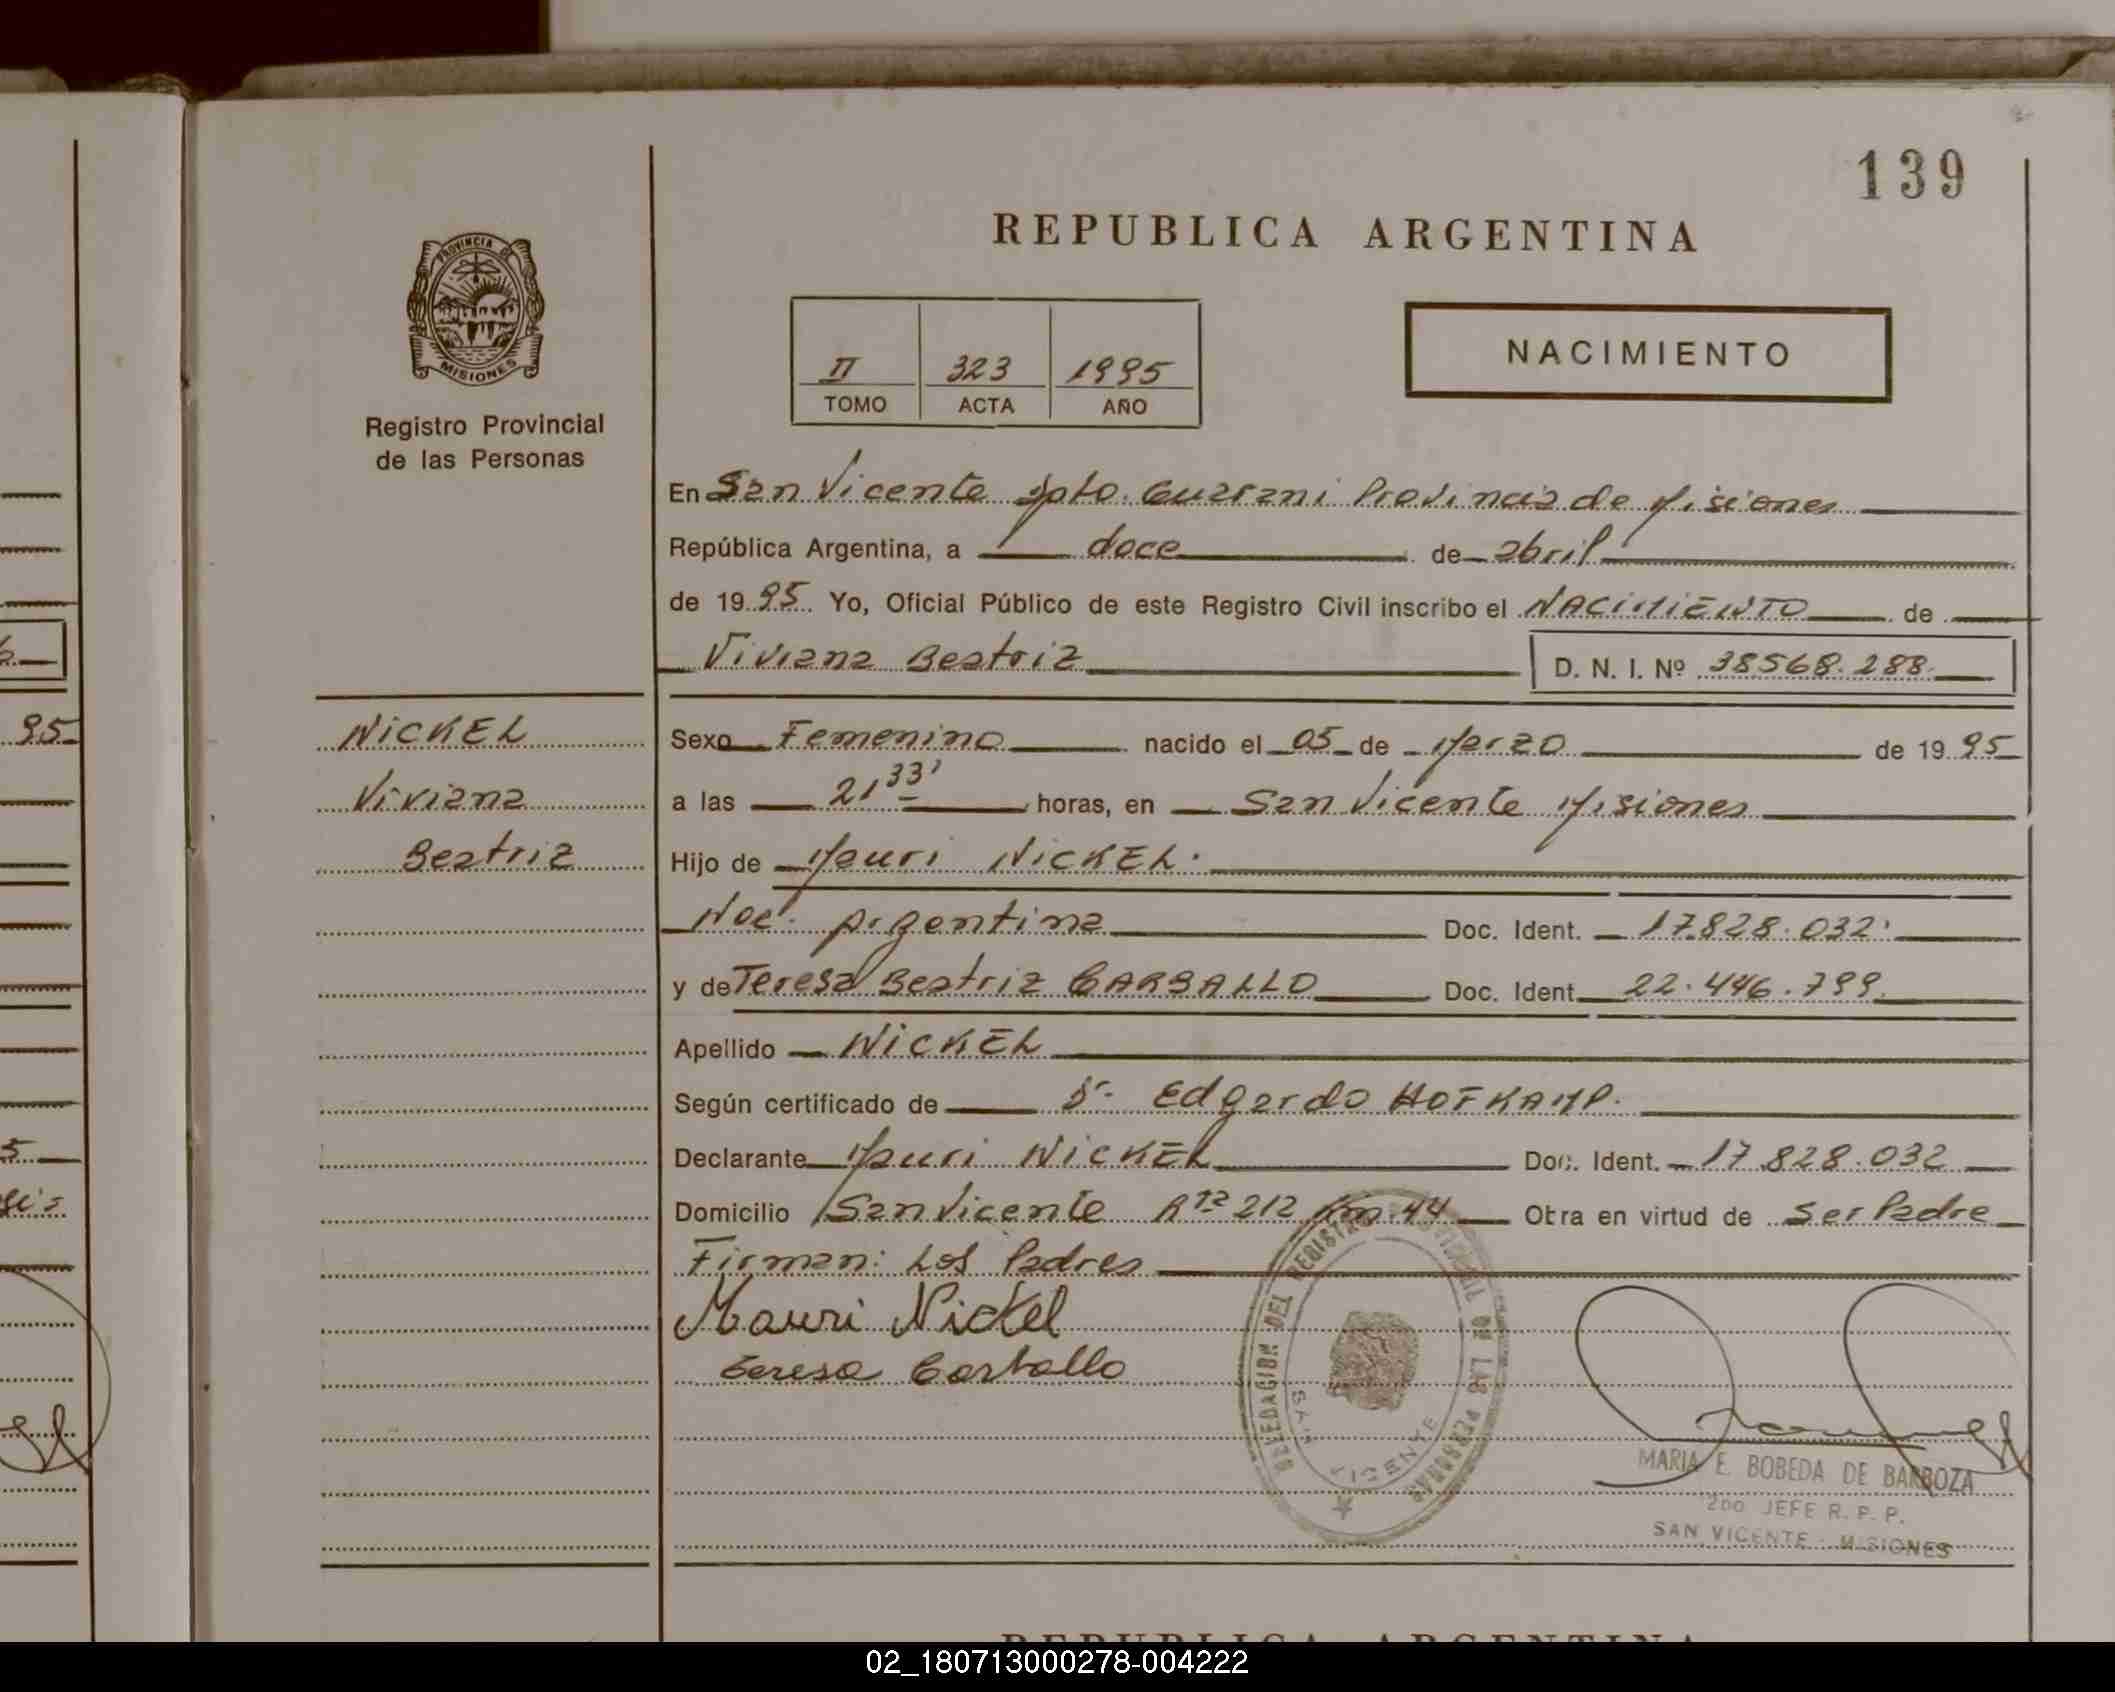 139
REPUBLICA ARGENTINA
PROVINCIA DE
MISIONES
Registro Provincial
de las Personas
II 323 1995
TOMO ACTA AÑO
NACIMIENTO
En San Vicente Dpto. Guarani Provincia de Misiones
República Argentina, a doce de abril
de 1995 Yo, Oficial Público de este Registro Civil inscribo el NACIMIENTO de
Viviana Beatriz D. N. I. Nº 38568.288.
NICKEL
Viviana
Beatriz
Sexo Femenino nacido el 05 de Marzo de 1995
a las 21 33' horas, en San Vicente Misiones
Hijo de Mauri NICKEL.
Nac. Argentina Doc. Ident. 17.828.032.
y de Teresa Beatriz CARBALLO Doc. Ident. 22.446.799.
Apellido NICKEL
Según certificado de Dr. Edgardo HOFKAMP.
Declarante Mauri NICKEL Doc. Ident. 17.828.032
Domicilio San Vicente Rta 212 Km. 44 Obra en virtud de Ser Padre
Firman: Los Padres
Mauri Nickel
Teresa Carballo
DELEGACION DEL REGISTRO PROVINCIAL DE LAS PERSONAS
SAN VICENTE
MARIA E. BOBEDA DE BARBOZA
2do JEFE R. P. P.
SAN VICENTE - MISIONES
95
REPUBLICA ARGENTINA
02_180713000278-004222